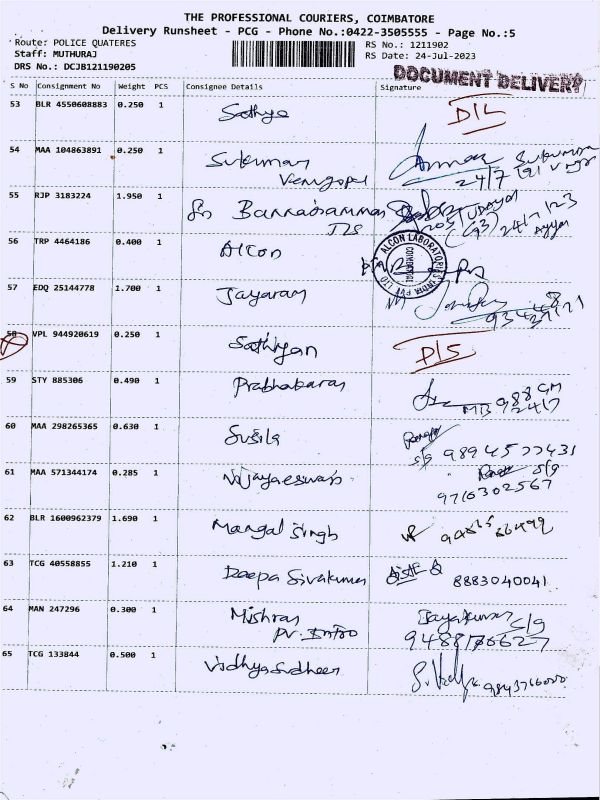 THE PROFESSIONAL COURIERS, COIMBATORE
Delivery Runsheet - PCG - Phone No.:0422-3505555 - Page No.:5
Route: POLICE QUATERES RS No.: 1211902
Staff: MUTHURAJ RS Date: 24-Jul-2023
DRS No.: DCJB121190205
DOCUMENT DELIVERY
S No Consignment No Weight PCS Consignee Details Signature
53 BLR 4550608883 0.250 1 Sathya D/L
54 MAA 104863891 0.250 1 Sukumar
Venugopal 24/7
55 RJP 3183224 1.950 1 Sri Bannariamman
TLS 24/7/23
56 TRP 4464186 0.400 1 Alcon ALCON LABORATORIES INDIA PVT LTD
57 EDQ 25144778 1.700 1 Jayaram
58 VPL 944920619 0.250 1 Sathiyan D/S
59 STY 885306 0.490 1 Prabhakaran
60 MAA 298265365 0.630 1 Susila
S/g 9894577431
61 MAA 571344174 0.285 1 Vijayaeswari S/g
9716302567
62 BLR 1600962379 1.690 1 Mangal Singh
63 TCG 40558855 1.210 1 Deepa Sivakumar 8883040041
64 MAN 247296 0.300 1 Mishras Jayakumar S/g
Pv. Intro
65 TCG 133844 0.500 1 Vidhya Sudheer